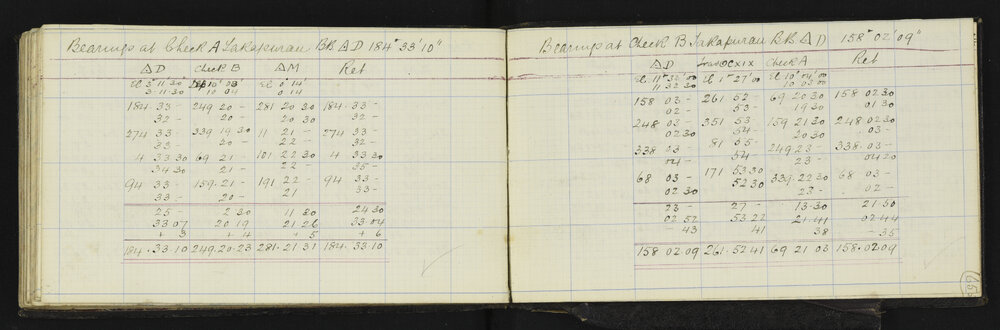 Bearings at Check A Takapurau RB △D 184° 33' 10"
△D Check B △M Ret
El 3° 11' 30" 10' 03' El 0' 14'
3.11.30 10 04 0 14
184. 33 - 249 20 - 281 20 30 184. 33 -
32 - 20 - 20 30 32 -
274 33 - 339 19 30 11 21 - 274 33 -
33 - 20 - 22 - 32 -
4 33 30 69 21 - 101 22 30 4 33 30
34 30 21 - 22 - 35 -
94 33 - 159. 21 - 191 22 - 94 33 -
33 - 20 - 21 33 -
25 - 2 30 11 30 24 30
33 07 20 19 21 26 33 04
+ 3 + 4 + 5 + 6
184. 33. 10 249. 20. 23 281. 21 31 184. 33. 10
Bearings at Check B Takapurau RB △D 158° 02' 09"
△D CXIX Check A Ret
El 11° 32' 00 El 1° 27' 00 El 10° 04' 00
11 32 30 10 03 00
158 03 - 261 52 - 69 20 30 158 02 30
02 - 53 - 19 30 01 30
248 03 - 351 53 - 159 21 30 248 02 30
02 30 54 - 20 30 03 -
338 03 - 81 55 - 249 23 - 338. 03 -
04 - 54 - 23 - 04 20
68 03 - 171 53 30 339. 22 30 68 03 -
02 30 52 30 23 - 02 -
23 - 27 - 13. 30 21. 30
02 52 53 22 21. 41 02 44
- 43 41 38 - 35
158 02 09 261. 52 41 69 21 03 158. 02. 09
65